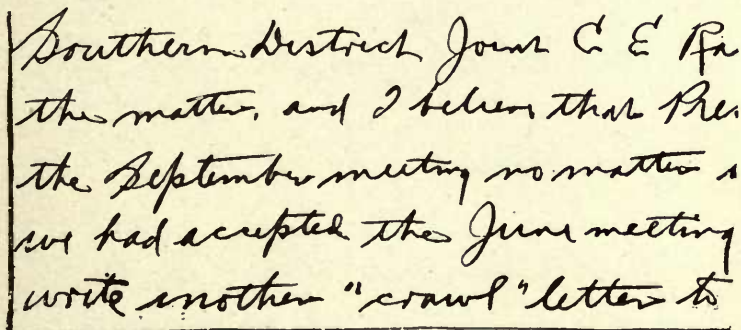 Southern District Joint C E Ra
the matter. and I believe that Pre
the September meeting no matter
we had accepted the June meeting
write another "crawl" letter to